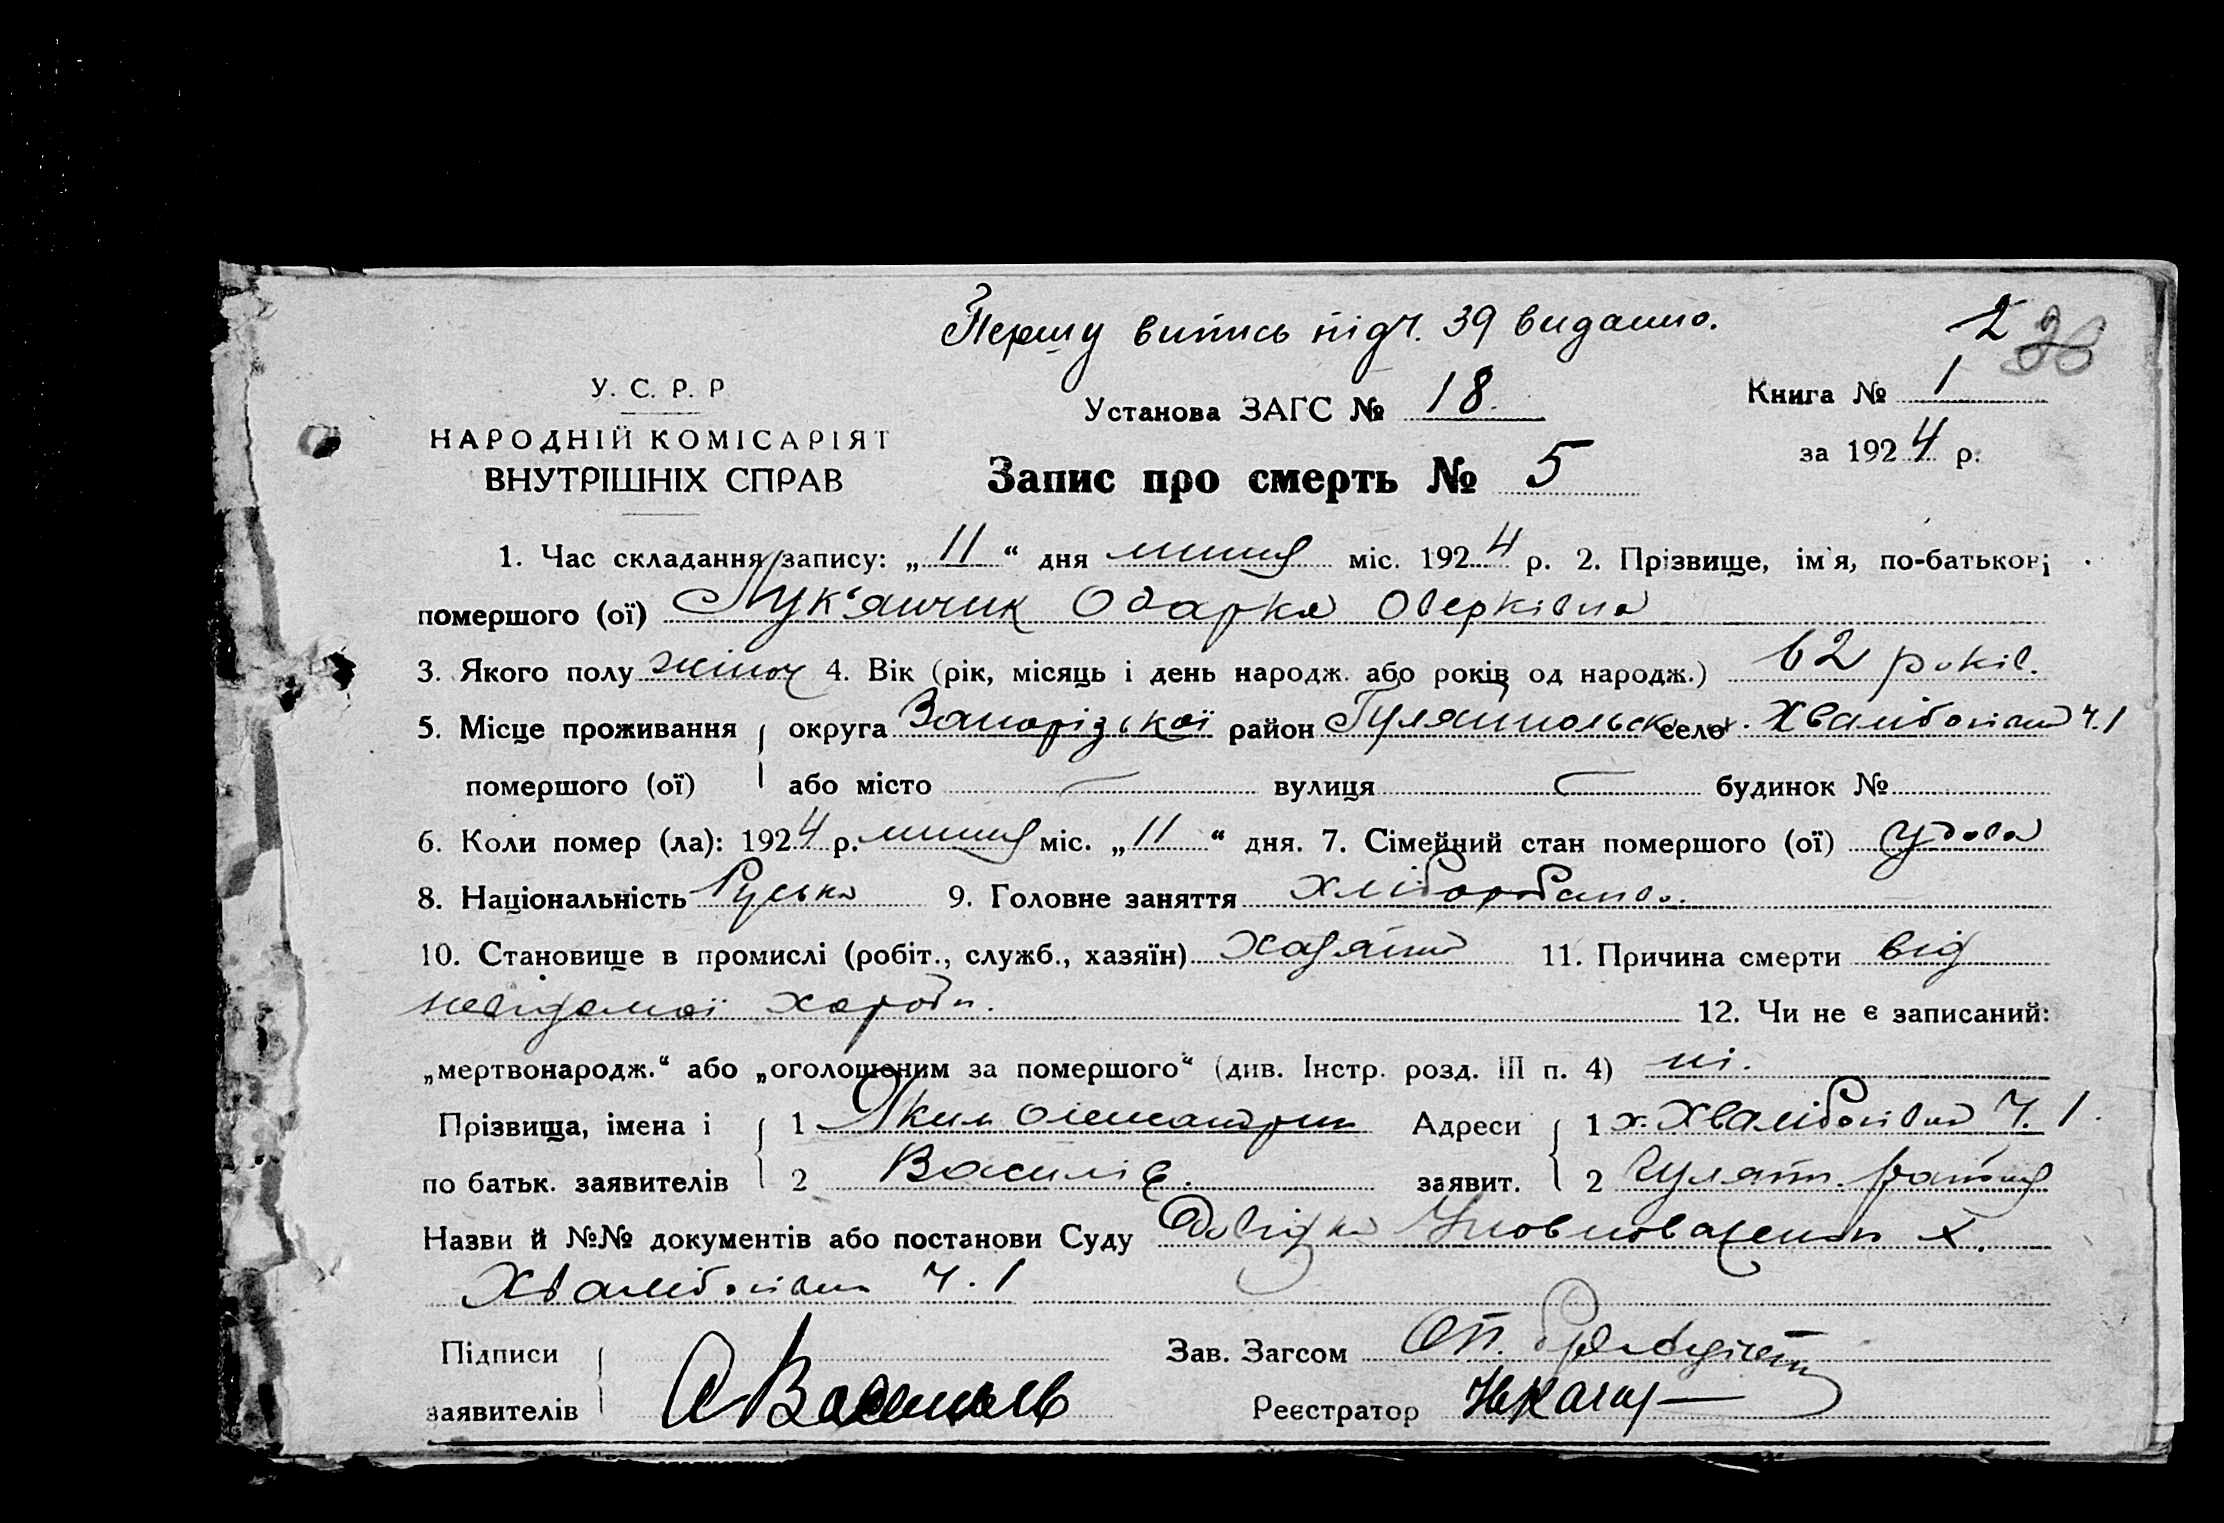 Першу випись під ч. 39 видано.
2
У. С. Р. Р
НАРОДНІЙ КОМІСАРІЯТ
ВНУТРІШНІХ СПРАВ
Установа ЗАГС № 18
Книга № 1
за 1924 р.
Запис про смерть № 5
1. Час складання запису: „11“ дня липня міс. 1924 р. 2. Прізвище, ім'я, по-батькові
помершого (ої) Лук'янчик Одарка Оверківна
3. Якого полу жіноч 4. Вік (рік, місяць і день народж. або років од народж.) 62 років.
5. Місце проживання округа Запорізької район Гуляйпольск село х. Хвалибогівка Ч. 1
помершого (ої) або місто — вулиця — будинок №
6. Коли помер (ла): 1924 р. липня міс. „11“ дня. 7. Сімейний стан помершого (ої) удова
8. Національність Руська 9. Головне заняття хліборобство.
10. Становище в промислі (робіт., служб., хазяїн) хазяїн 11. Причина смерти від
невідомої хороби. 12. Чи не є записаний:
„мертвонародж.“ або „оголошеним за помершого“ (див. Інстр. розд. III п. 4) ні.
Прізвища, імена і 1 Яким Адреси 1 х. Хвалибогівка Ч. 1.
по батьк. заявителів 2 Василів. заявит. 2 Гуляйп. району
Назви й №№ документів або постанови Суду Довідка Уповноваженого х.
Хвалибогівки Ч. 1
Підписи Зав. Загсом
заявителів Реєстратор